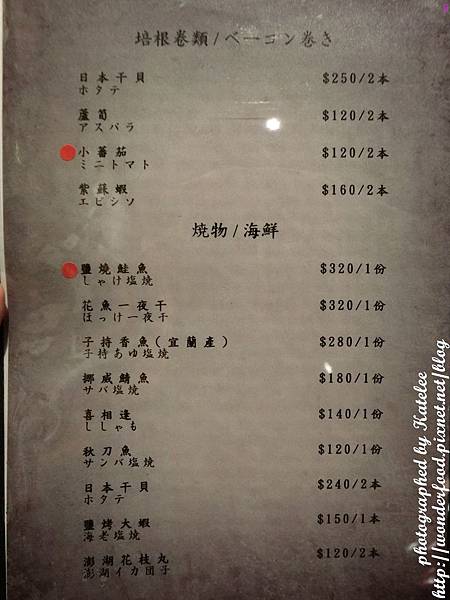 培根卷類/ベーコン巻き
日本干貝 $250/2本
ホタテ
蘆筍 $120/2本
アスパラ
小蕃茄 $120/2本
ミニトマト
紫蘇蝦 $160/2本
エビシソ
燒物/海鮮
鹽燒鮭魚 $320/1份
しゃけ塩焼
花魚一夜干 $320/1份
ほっけ一夜干
子持香魚(宜蘭產) $280/1份
子持あゆ塩焼
挪威鯖魚 $180/1份
サバ塩焼
喜相逢 $140/1份
ししゃも
秋刀魚 $120/1份
サンバ塩焼
日本干貝 $240/2本
ホタテ
鹽烤大蝦 $150/1本
海老塩焼
澎湖花枝丸 $120/2本
澎湖イカ団子
photographed by Katelee
http://wonderfood.pixnet.net/blog